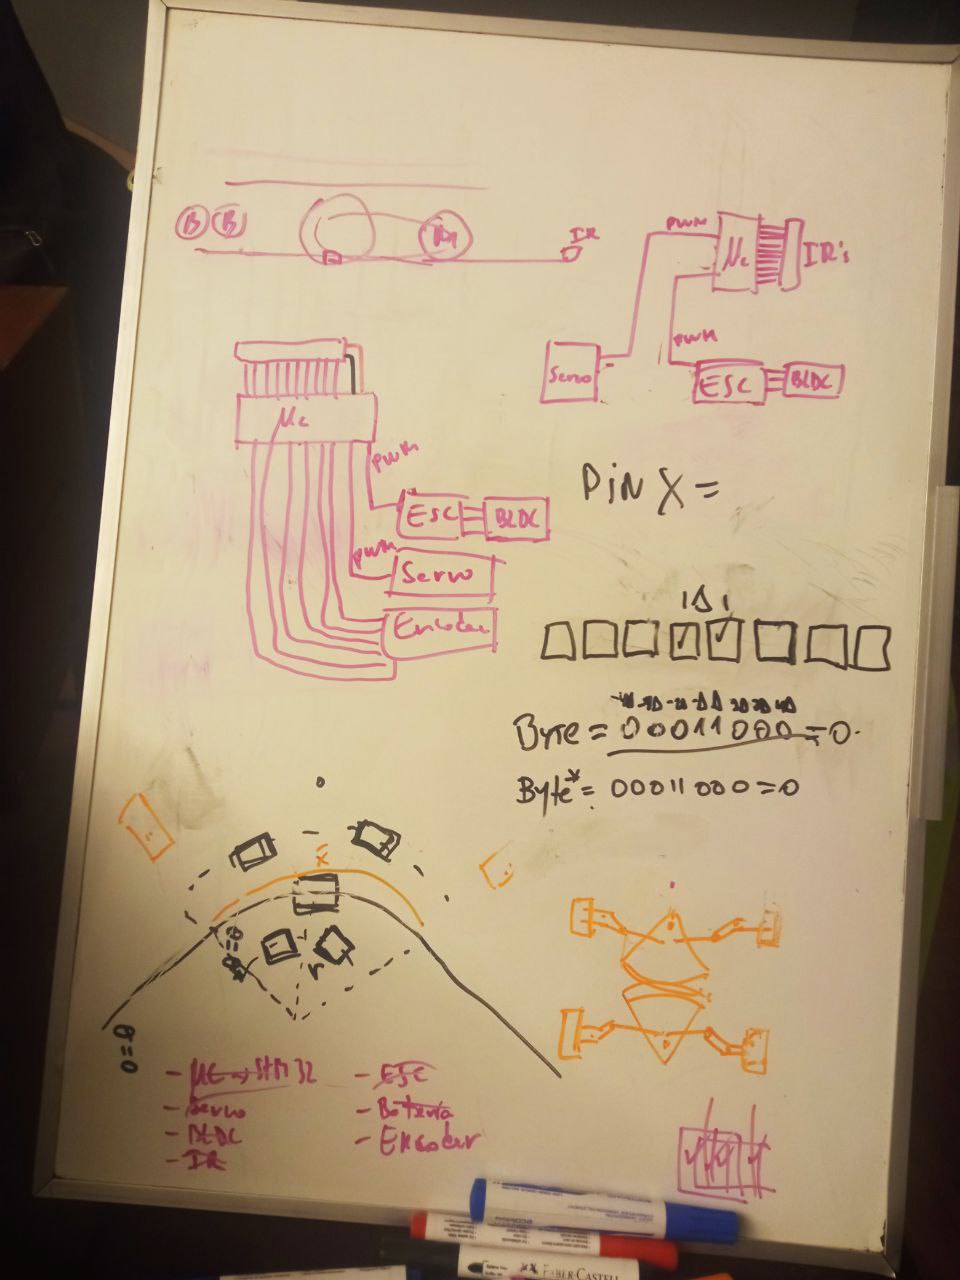 B B M IR
PWM
μc IR's
PWM
Servo ESC BLDC
μc
PWM
ESC BLDC
PWM
Servo
Encoder
PIN X =
1Δ1
✓ ✓
Byte = 00011000 = 0
Byte* = 00011000 = 0
x
θ=0
r
θ=0
- μC → STM32
- Servo
- BLDC
- IR
- ESC
- Batería
- Encoder
FABER-CASTELL